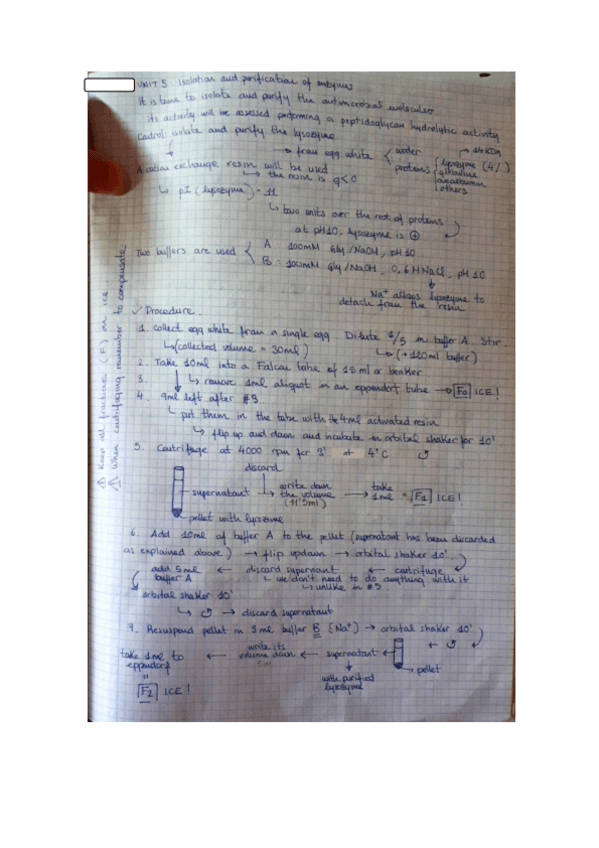 UNIT 5 Isolation and purification of enzymes
It is time to isolate and purify the antimicrobial molecules
its activity will be assessed performing a peptidoglycan hydrolytic activity
Control: isolate and purify the lysozyme
→ from egg white < water
proteins lysozyme (4%) → 14 KDa
albumine
ovoalbumin
others
A cation exchange resin will be used
↳ the resin is q<0
↳ pI (lysozyme) = 11
↳ two units over the rest of proteins
at pH 10, lysozyme is ⊕
Two buffers are used < A 100mM Gly/NaOH, pH 10
B: 100mM Gly/NaOH, 0,6 M NaCl, pH 10
Na⁺ allows lysozyme to
detach from the resin
✓ Procedure
1. Collect egg white from a single egg Dilute 1/5 in buffer A. Stir.
↳ (collected volume = 30ml) ↳ (+120ml buffer)
2. Take 10ml into a Falcon tube of 15ml or beaker
3. ↳ remove 1ml aliquot in an eppendorf tube → F₀ ICE!
4. 9ml left after #3
↳ put them in the tube with the 4ml activated resin
↳ flip up and down and incubate in orbital shaker for 10'
5. Centrifuge at 4000 rpm for 3' at 4°C
discard
supernatant → write down the volume (11'5ml) → take 1ml = F₁ ICE!
pellet with lysozyme
6. Add 10ml of buffer A to the pellet (supernatant has been discarded
as explained above) → flip updown → orbital shaker 10'
add 5ml buffer A ← discard supernant ← centrifuge
↳ we don't need to do anything with it
↳ unlike in #5
orbital shaker 10'
↳ → discard supernatant
7. Resuspend pellet in 5ml buffer B (Na⁺) → orbital shaker 10'
take 1ml to eppendorf ← write its volume down ← supernatant ←
5ml
pellet
with purified
lysozyme
=
F₂ ICE!
⚠ Keep all fractions (F) on ice
⚠ When centrifuging remember to compensate